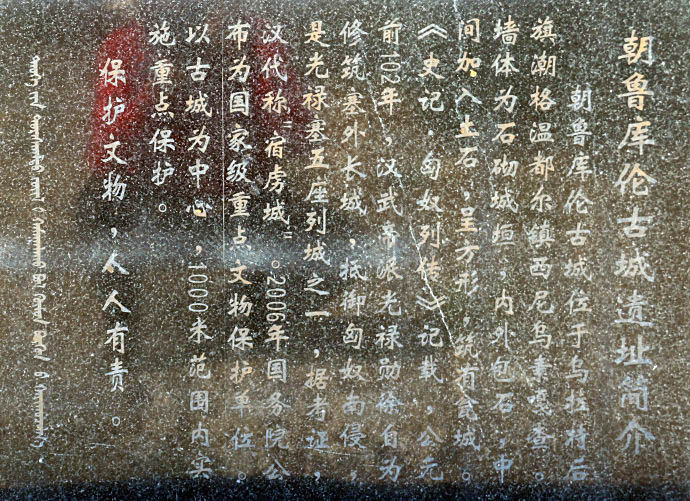 朝鲁库伦古城遗址简介
朝鲁库伦古城位于乌拉特后
旗潮格温都尔镇西尼乌素嘎查。
墙体为石砌城垣，内外包石，中
间加入土石，呈方形，筑有瓮城。
《史记·匈奴列传》记载，公元
前102年，汉武帝派光禄勋徐自为
修筑塞外长城，抵御匈奴南侵，
是光禄塞五座列城之一，据考证，
汉代称“宿虏城”。2006年国务院公
布为国家级重点文物保护单位。
以古城为中心，1000米范围内实
施重点保护。
保护文物，人人有责。